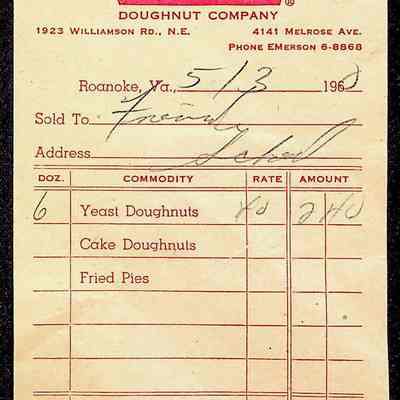 ®
DOUGHNUT COMPANY
1923 Williamson Rd., N.E. 4141 Melrose Ave.
Phone EMerson 6-8868
Roanoke, Va., 5/3 1960
Sold To
Address School
DOZ. COMMODITY RATE AMOUNT
6 Yeast Doughnuts 40 2 40
Cake Doughnuts
Fried Pies